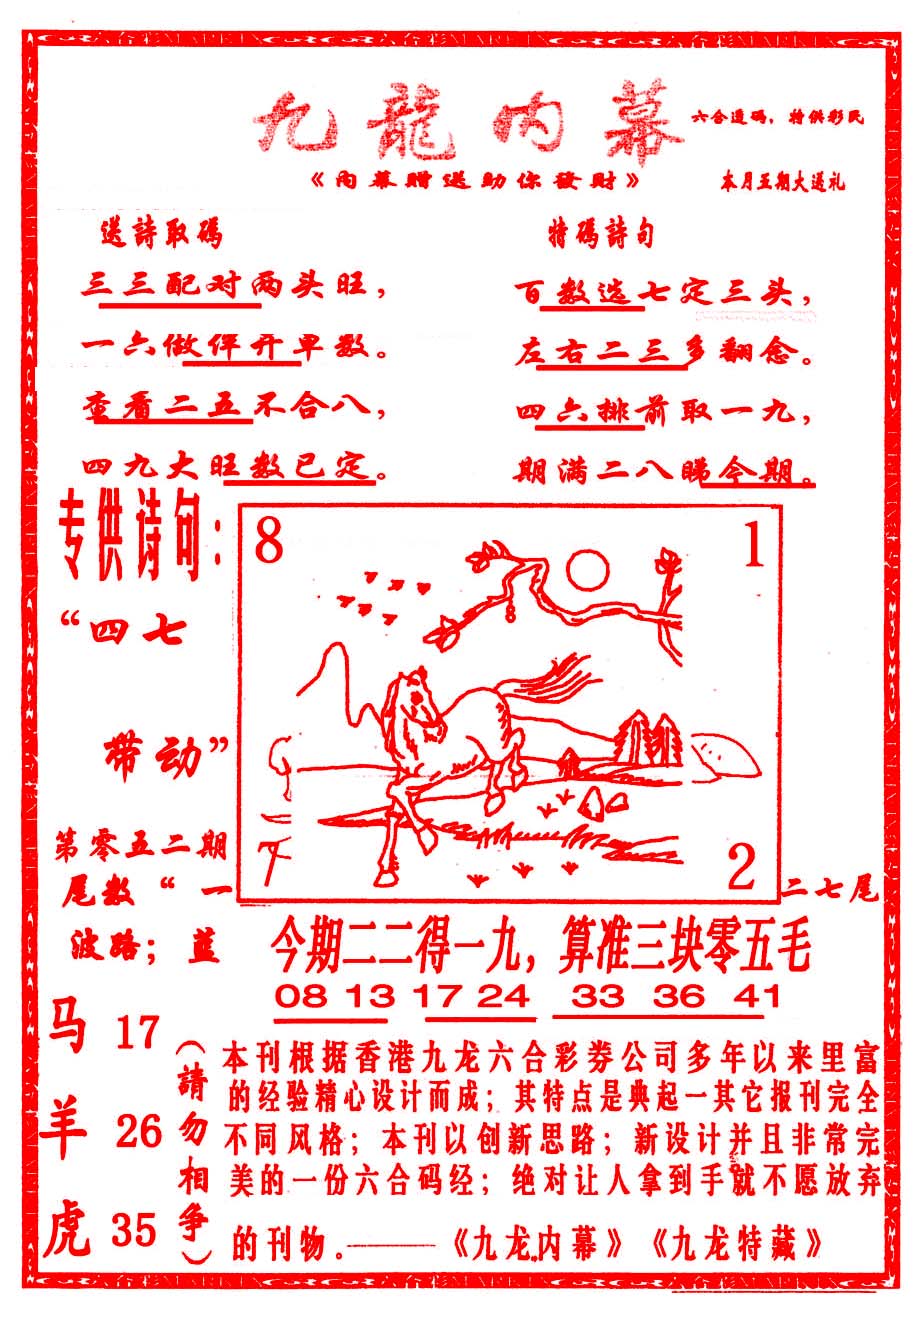 九龍内幕
六合透码，特供彩民
《内幕赠送助你發財》
本月五期大送礼
送詩取碼
三三配对两头旺，
一六做伴开单数。
查看二五不合八，
四九大旺数已定。
特碼詩句
百数选七定三头，
左右二三多翻念。
四六排前取一九，
期满二八睇今期。
专供诗句：
“四七
带动”
第零五二期
尾数“一
二七尾
波路；蓝
8
1
2
今期二二得一九，算准三块零五毛
08 13 17 24 33 36 41
马 17
羊 26
虎 35
（請勿相争）
本刊根据香港九龙六合彩券公司多年以来里富
的经验精心设计而成；其特点是典起一其它报刊完全
不同风格；本刊以创新思路；新设计并且非常完
美的一份六合码经；绝对让人拿到手就不愿放弃
的刊物。——《九龙内幕》《九龙特藏》